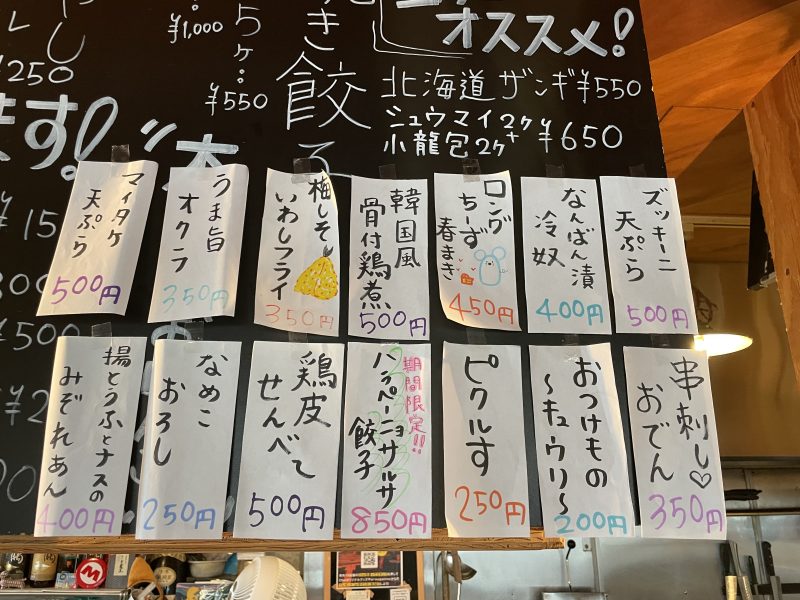 ¥1,000
5ヶ
¥550
¥250
き餃子
オススメ!
北海道ザンギ¥550
シュウマイ2ヶ+
小龍包2ヶ
¥650
ます!
マイタケ
天ぷら
500円
うま旨
オクラ
350円
梅しそ
いわしフライ
350円
韓国風
骨付鶏煮
500円
ロング
ちーず
春まき
450円
なんばん漬
冷奴
400円
ズッキーニ
天ぷら
500円
揚とうふとナスの
みぞれあん
400円
なめこ
おろし
250円
鶏皮
せんべい
500円
期間限定!!
ハラペーニョサルサ
餃子
850円
ピクルす
250円
おつけもの
〜キュウリ〜
200円
串刺し♡
おでん
350円